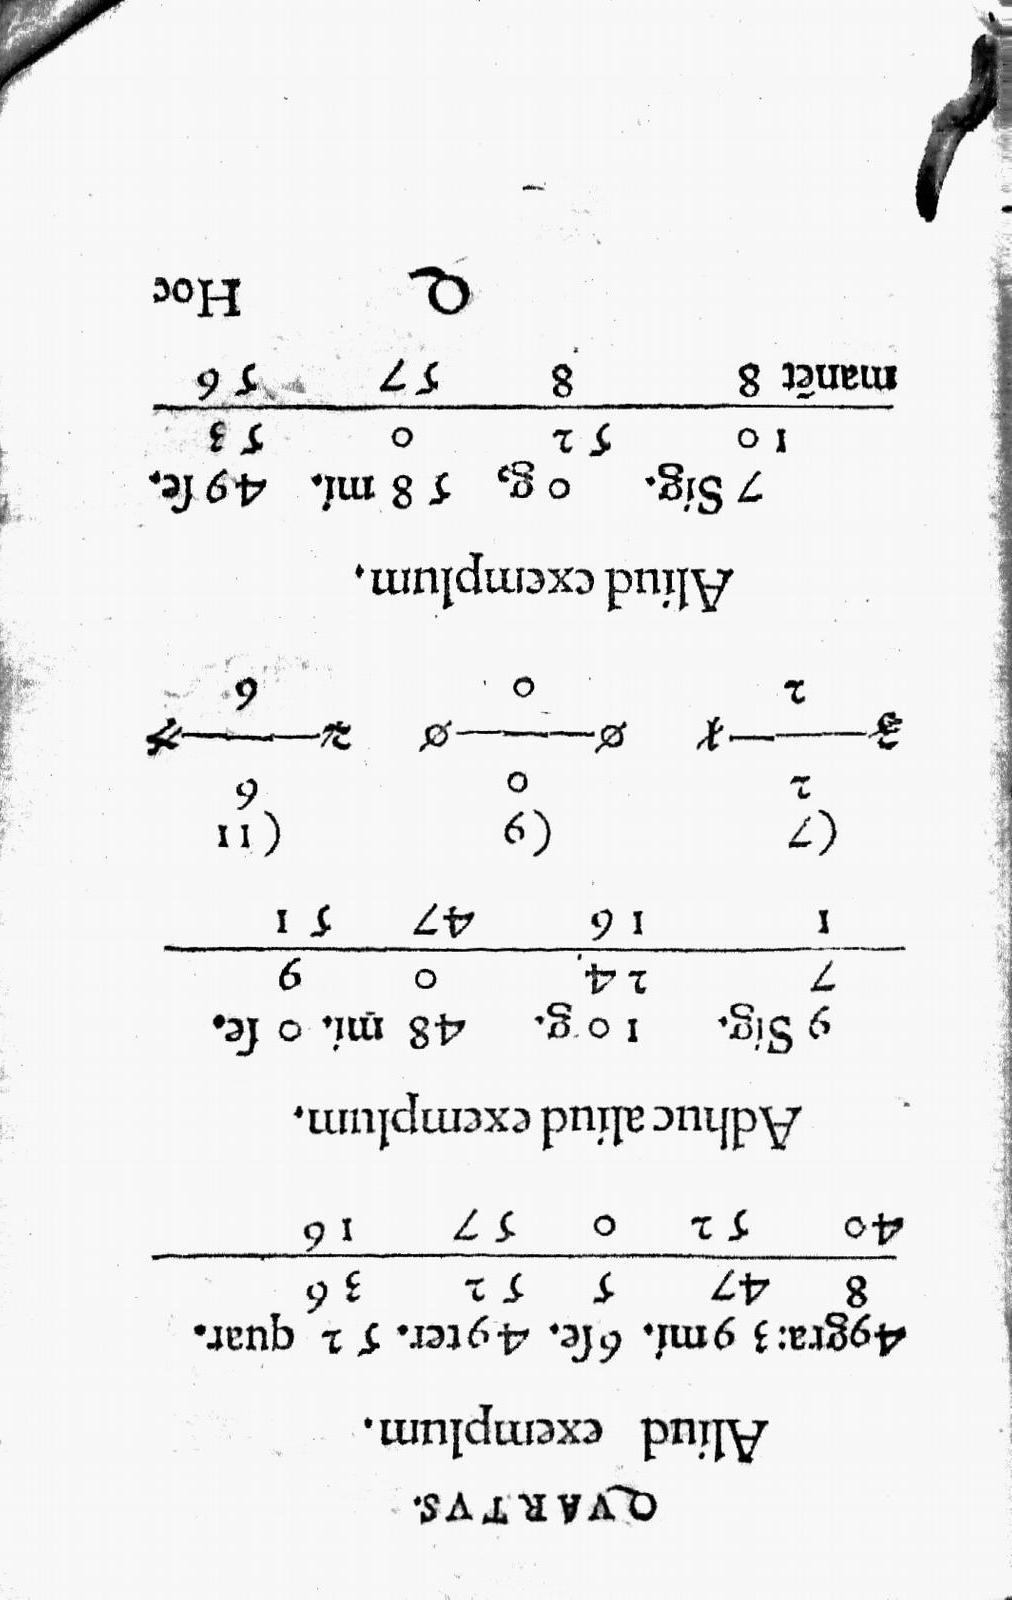 QVARTVS.
Aliud exemplum.
49gra: 39mi. 6ſe. 49ter. 52 quar.
8 47 5 52 36
40 52 0 57 16
Adhuc aliud exemplum.
9 Sig. 10 g. 48 mi. 0 ſe.
7 24 0 9
1 16 47 51
(7 (9 (11
2 0 6
3 — 1 0 — 0 2 — 7
2 0 6
Aliud exemplum.
7 Sig. 0 g. 58 mi. 49 ſe.
10 52 0 53
manēt 8 8 57 56
Q Hoc